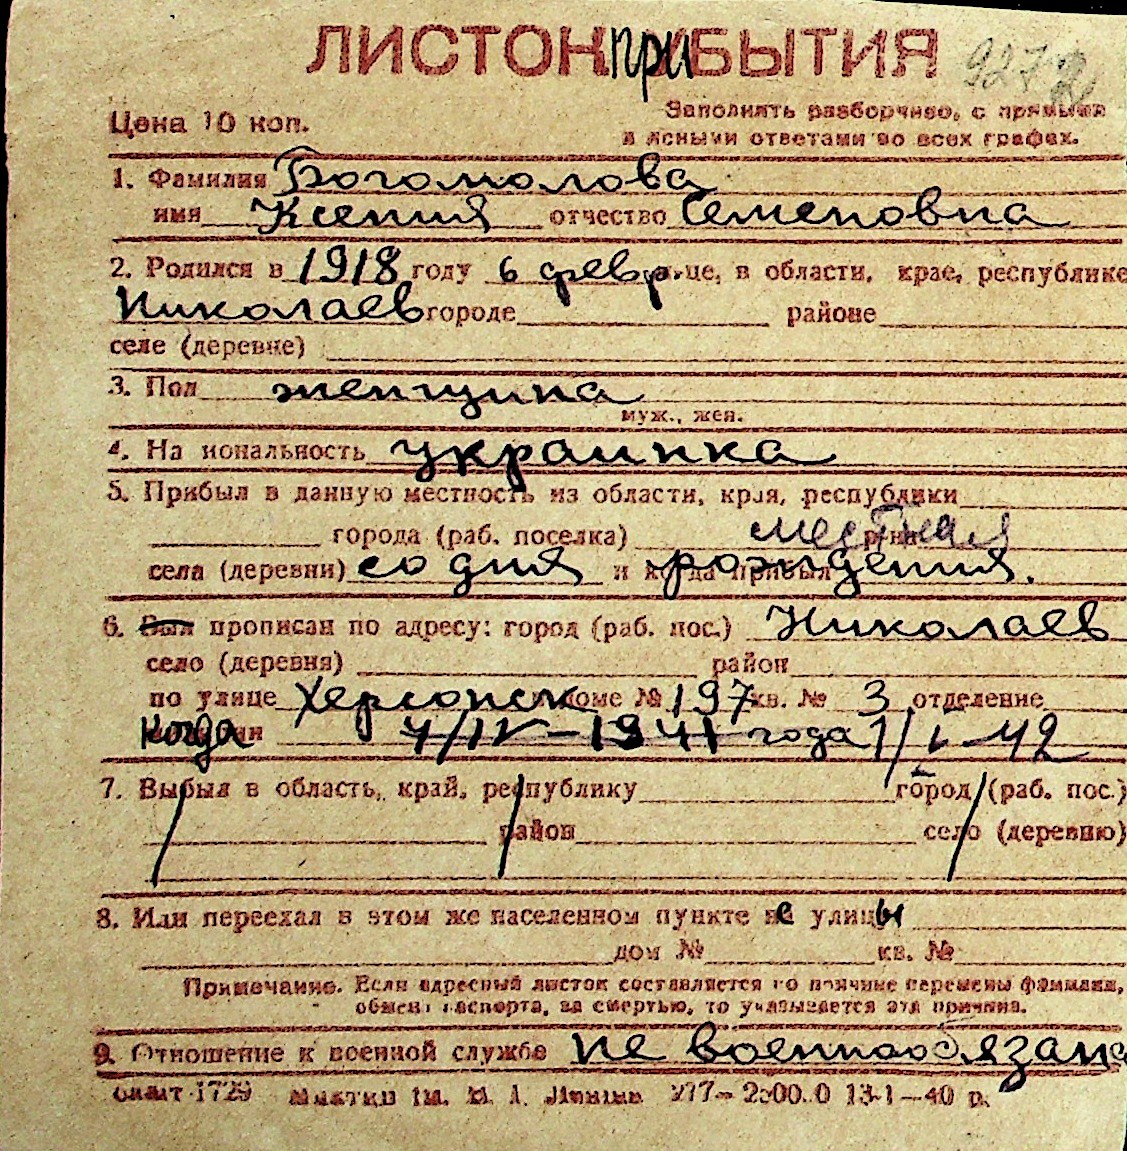 ЛИСТОК при БЫТИЯ 9272
Цена 10 коп.
Заполнять разборчиво, с прямыми
и ясными ответами во всех графах.
1. Фамилия Богомолова
имя Ксения отчество Семеновна
2. Родился в 1918 году 6 февр. це, в области, крае, республике
Николаев городе районе
селе (деревне)
3. Пол женщина
муж., жен.
4. Национальность украинка
5. Прибыл в данную местность из области, края, республики
города (раб. поселка) местная
села (деревни) со дня и когда прибыл рождения.
6. Был прописан по адресу: город (раб. пос.) Николаев
село (деревня) район
по улице Херсонск доме № 197 кв. № 3 отделение
когда 4/IV-1941 года 1/I-42
7. Выбыл в область, край, республику город (раб. пос.)
район село (деревню)
8. Или переехал в этом же населенном пункте не улицы
дом № кв. №
Примечание. Если адресный листок составляется по причине перемены фамилии,
обмена паспорта, за смертью, то указывается эта причина.
9. Отношение к военной службе не военнообязана
1729 277- 13-1-40 р.